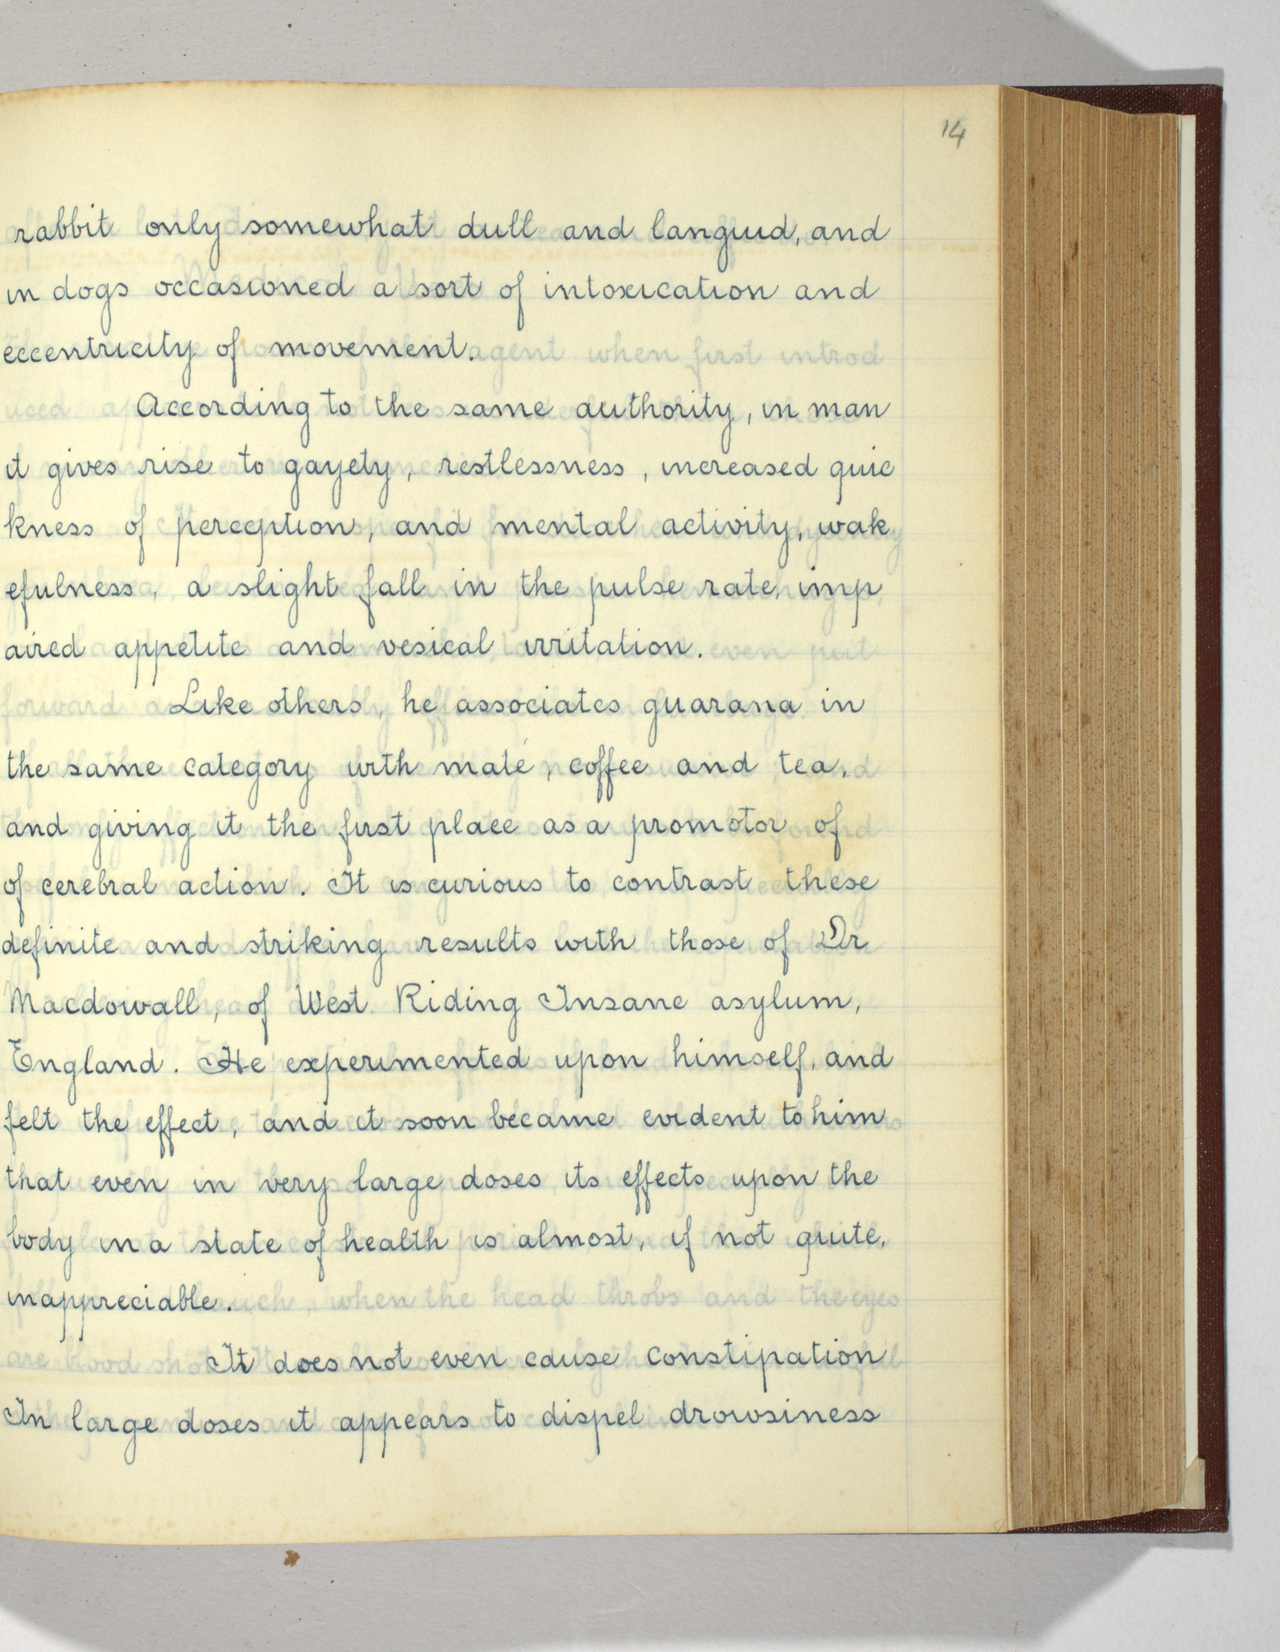 14
rabbit only somewhat dull and languid, and
in dogs occasioned a sort of intoxication and
eccentricity of movement.
According to the same authority, in man
it gives rise to gayety, restlessness, increased quic
kness of perception, and mental activity, wak
efulness, a slight fall in the pulse rate, imp
aired appetite and vesical irritation.
Like others, he associates guarana in
the same category with maté, coffee and tea,
and giving it the first place as a promotor of
of cerebral action. It is curious to contrast these
definite and striking results with those of Dr
Macdowall, of West Riding Insane asylum,
England. He experimented upon himself, and
felt the effect, and it soon became evident to him
that even in very large doses its effects upon the
body in a state of health is almost, if not quite,
inappreciable.
It does not even cause constipation
In large doses it appears to dispel drowsiness